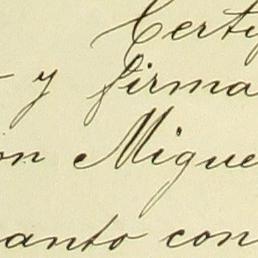 Certi
y firma
on Migue
anto con